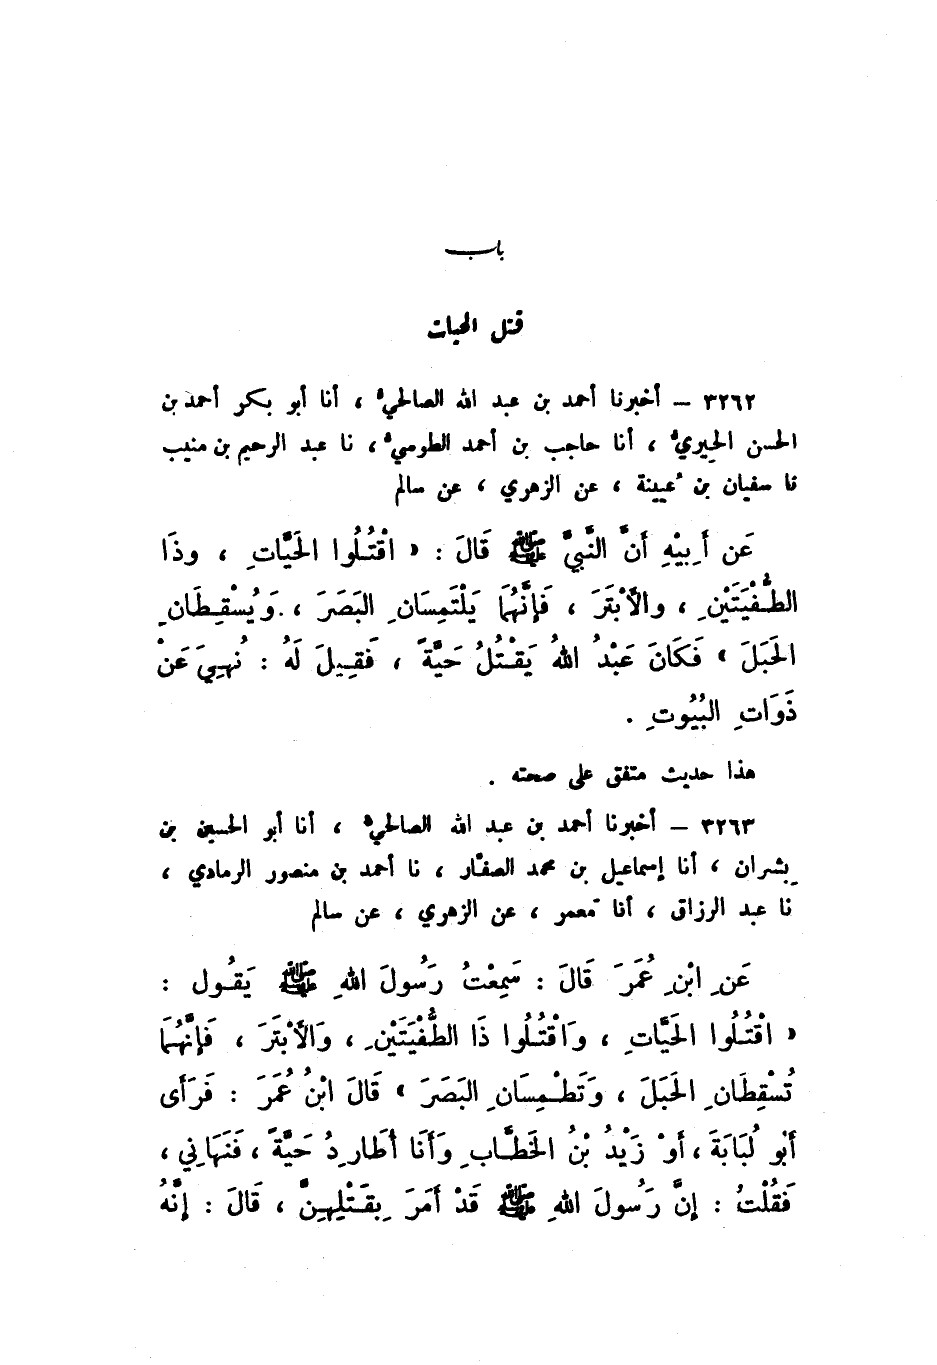 باب
قتل الحيات
٣٢٦٢ – أخبرنا أحمد بن عبد الله الصالحيُّ ، أنا أبو بكر أحمد بن
الحسن الحِيريُّ ، أنا حاجب بن أحمد الطوسيُّ ، نا عبد الرحيم بن منيب
نا سفيان بن عُيينة ، عن الزهري ، عن سالم
عَن أَبِيْهِ أَنَّ النَّبيَّ ﷺ قَالَ : « اقْتُلُوا الحَيَّاتِ ، وذَا
الطُّفْيَتَيْنِ ، والأَبْتَرَ ، فَإِنَّهُمَا يَلْتَمِسَانِ البَصَرَ ، وَيُسْقِطَانِ
الحَبَلَ » فَكَانَ عَبْدُ اللهُ يَقْتُلُ حَيَّةً ، فَقِيلَ لَهُ : نُهِيَ عَنْ
ذَوَاتِ البُيُوتِ .
هذا حديث متفق على صحته .
٣٢٦٣ – أخبرنا أحمد بن عبد الله الصالحيُّ ، أنا أبو الحسين بن
بِشران ، أنا إسماعيل بن محمد الصفَّار ، نا أحمد بن منصور الرمادي ،
نا عبد الرزاق ، أنا مَعمر ، عن الزهري ، عن سالم
عَنِ ابْنِ عُمَرَ قَالَ : سَمِعْتُ رَسُولَ اللهِ ﷺ يَقُول :
« اقْتُلُوا الحَيَّاتِ ، وَاقْتُلُوا ذَا الطُّفْيَتَيْنِ ، وَالأَبْتَرَ ، فَإِنَّهُمَا
تُسْقِطَانِ الحَبَلَ ، وَتَطْمِسَانِ البَصَرَ » قَالَ ابْنُ عُمَرَ : فَرَأَى
أَبُو لُبَابَةَ ، أَوْ زَيْدُ بْنُ الخَطَّابِ وَأَنَا أُطَارِدُ حَيَّةً ، فَنَهَانِي ،
فَقُلْتُ : إِنَّ رَسُولَ اللهِ ﷺ قَدْ أَمَرَ بِقَتْلِهِنَّ ، قَالَ : إِنَّهُ